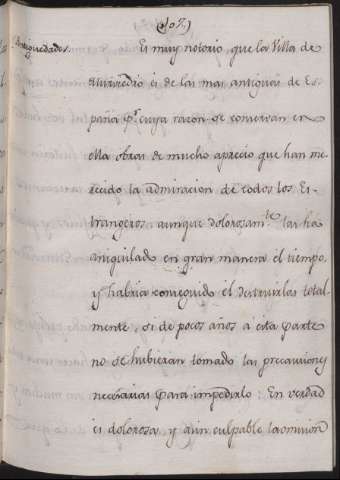 (107.)
Antiguedades.
Es muy notorio, que la Villa de
Murviedro es de las mas antiguas de Es-
paña p.r cuya razon se conservan en
ella obras de mucho aprecio que han me-
recido la admiracion de todos los Es-
trangeros aunque dolorosam.te las ha
aniquilado en gran manera el tiempo,
y habria conseguido el destruirlas total-
mente, si de pocos años a esta parte
no se hubieran tomado las precauciones
necesarias para impedirlo: En verdad
es dolorosa, y aun culpable la omision